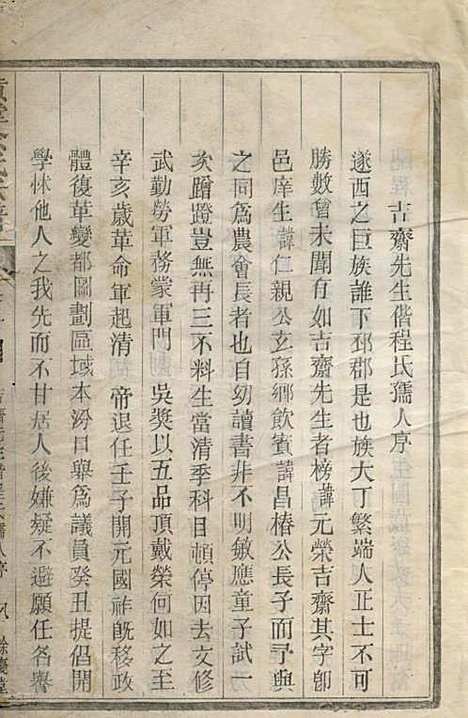 吉齋先生偕程氏孺人序
遂西之巨族誰下邳郡是也族大丁繁端人正士不可
勝數曾未聞有如吉齋先生者榜諱元榮吉齋其字卽
邑庠生諱仁親公玄孫鄉飲賓諱昌椿公長子而予與
之同爲農會長者也自幼讀書非不明敏應童子試一
次蹭蹬豈無再三不料生當清季科目頓停因去文修
武勤勞軍務蒙軍門 吳奬以五品頂戴榮何如之至
辛亥歲革命軍起清 帝退任壬子開元國祚旣移政
體復革變都圖劃區域本汾口舉爲議員癸丑提倡開
學怵他人之我先而不甘居人後嫌疑不避願任名譽
餘慶堂